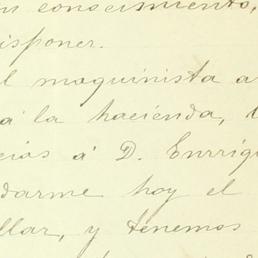 conocimiento,
isponer.
l maquinista a
á la hacienda,
cias á D. Enrriq
darme hoy el
llar, y tenemos